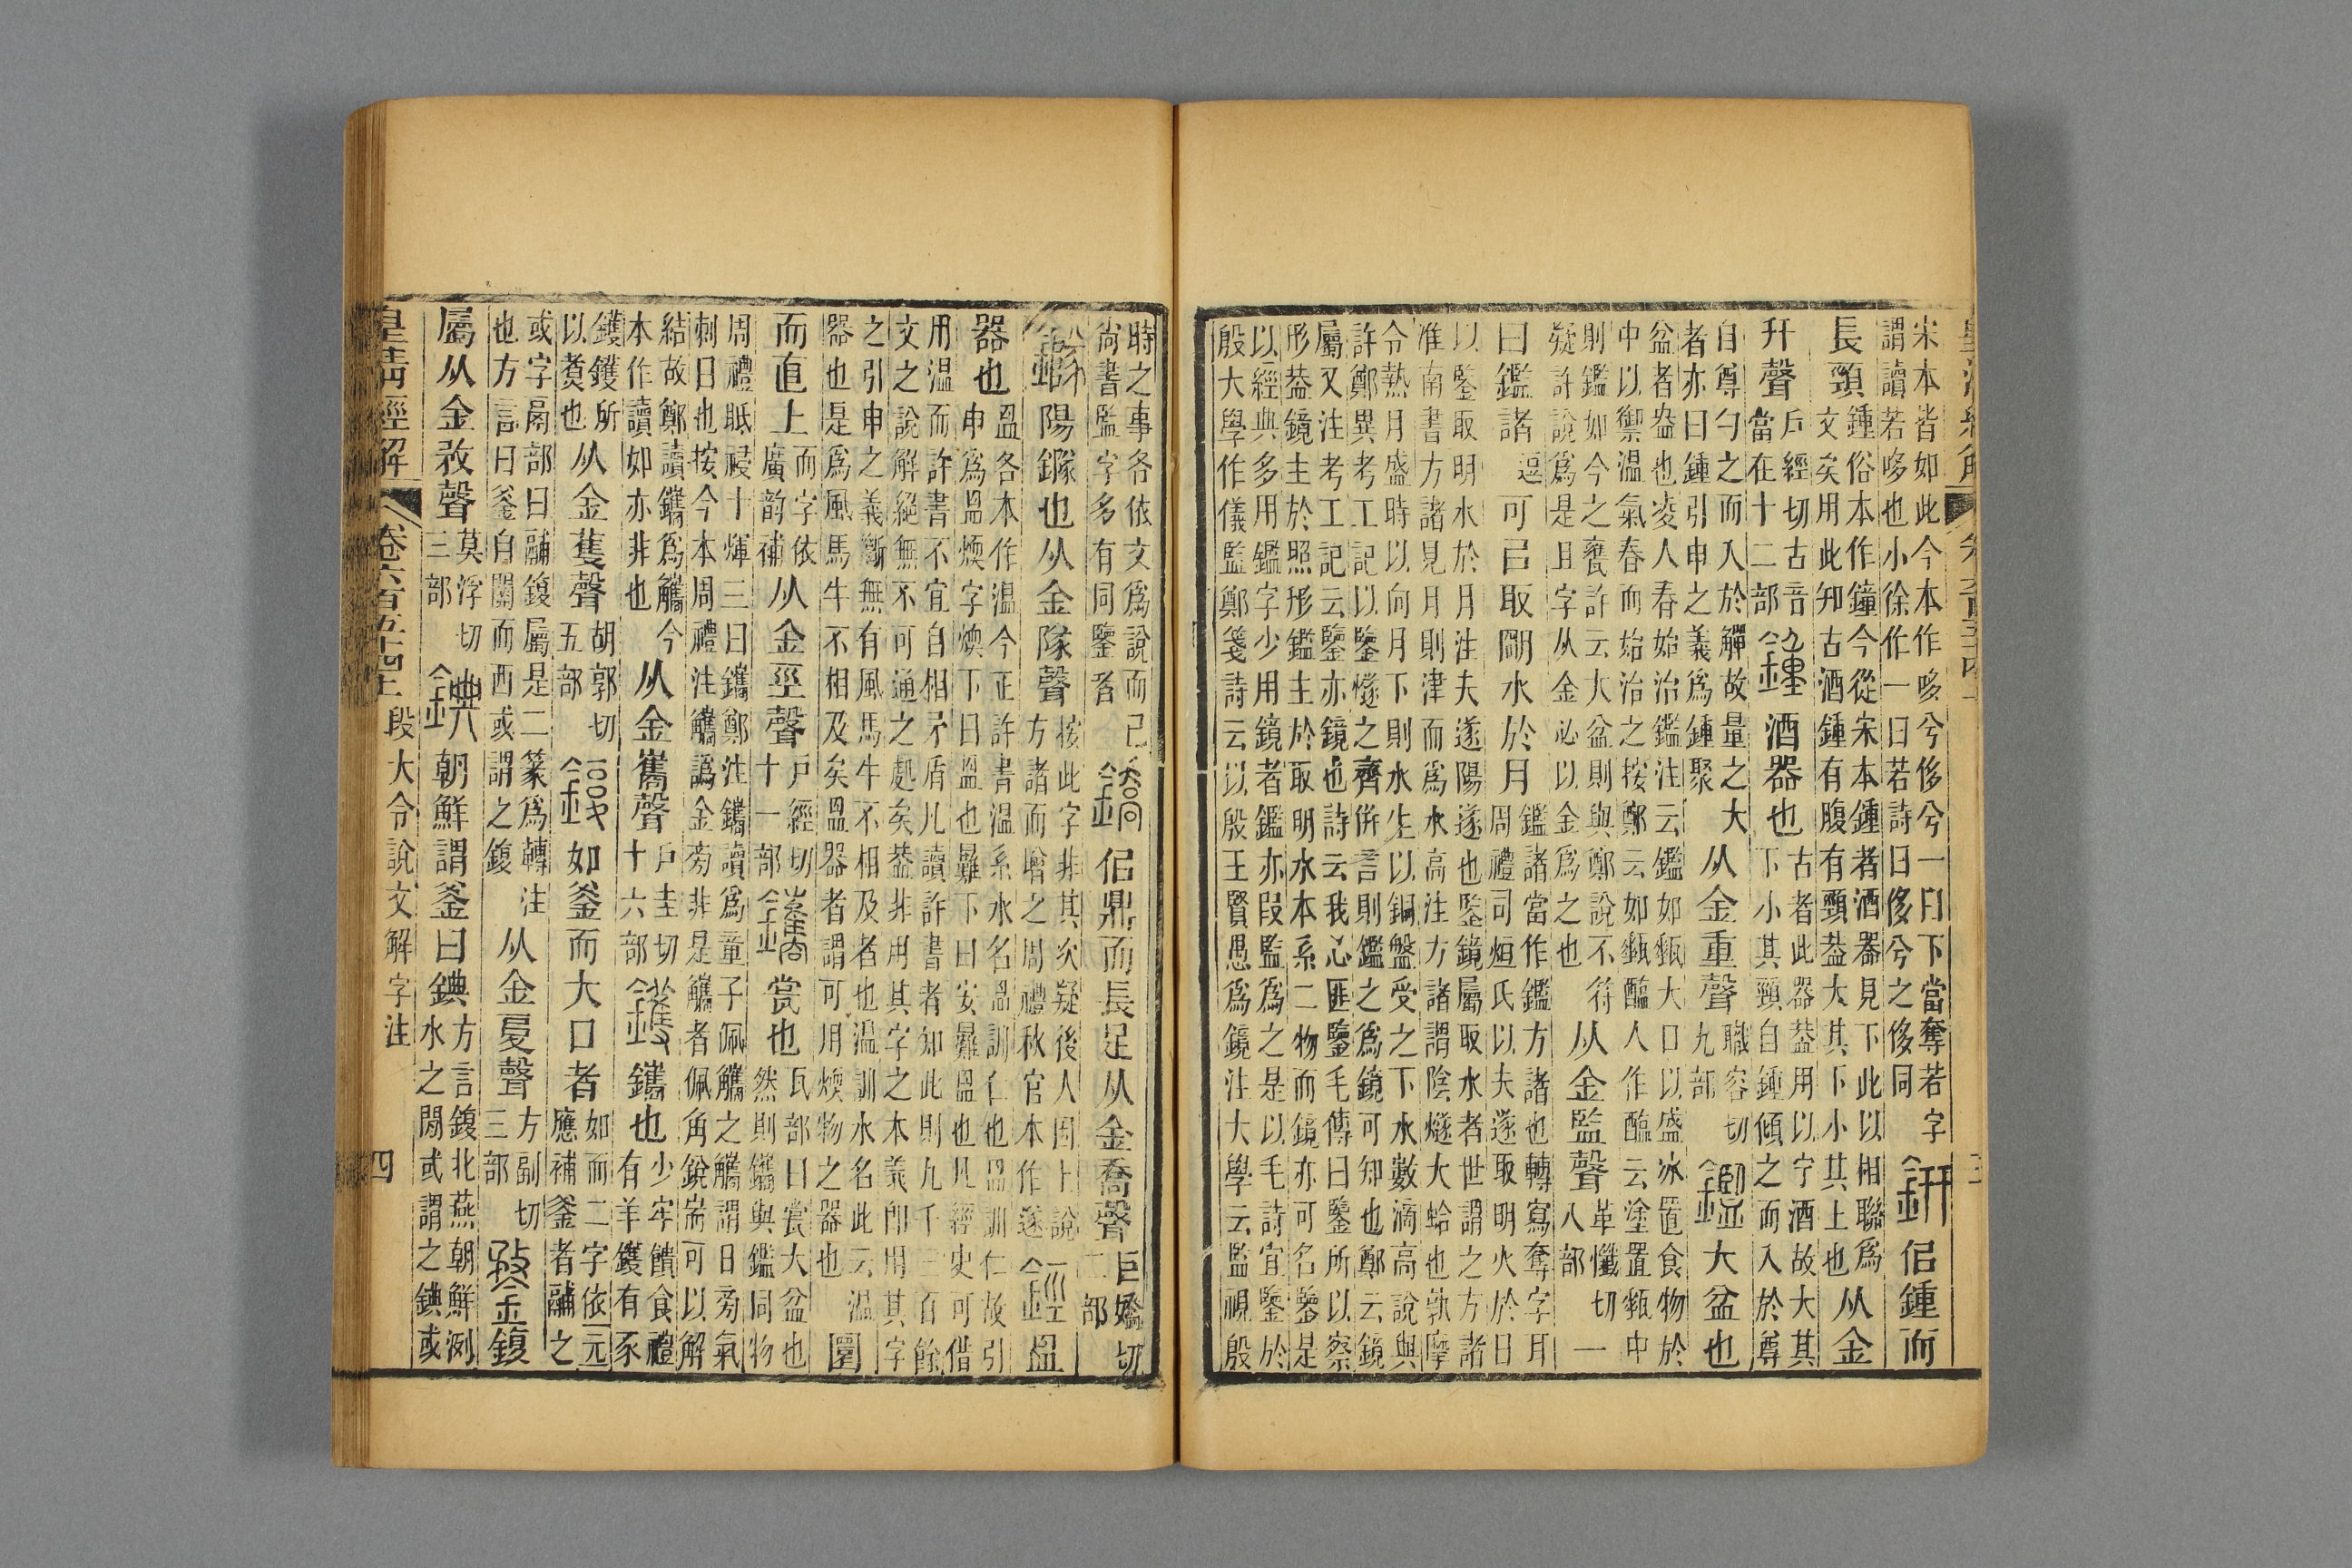 宋本皆如此今本作哆兮侈兮一曰下當奪若字
謂讀若哆也小徐作一曰若詩曰侈兮之侈同
鈃佀鍾而
長頸
鍾俗本作鐘今從宋本鍾者酒器見下此以相聯爲
文矣用此知古酒鍾有腹有頸葢大其下小其上也
从金
幵聲
戶經切古音
當在十二部
鍾酒器也
古者此器葢用以宁酒故大其
下小其頸自鍾傾之而入於尊
自尊勺之而入於觶故量之大
者亦曰鍾引申之義爲鍾聚
从金重聲
職容切
九部
鑑大盆也
盆者盎也凌人春始治鑑注云鑑如甀大口以盛冰置食物於
中以禦溫氣春而始治之按鄭云如甀醢人作醢云塗置甀中
則鑑如今之甕許云大盆則與鄭說不符
疑許說爲是且字从金必以金爲之也
从金監聲
革懺切
八部
一
曰鑑諸
逗
可㠯取朙水於月
鑑諸當作鑑方諸也轉寫奪字耳
周禮司烜氏以夫遂取明火於日
以鑒取明水於月注夫遂陽遂也鑒鏡屬取水者世謂之方諸
淮南書方諸見月則津而爲水高注方諸謂陰燧大蛤也孰摩
令熱月盛時以向月下則水生以銅盤受之下水數滴高說與
許鄭異考工記以鑒燧之齊併言則鑑之爲鏡可知也鄭云鏡
屬又注考工記云鑒亦鏡也詩云我心匪鑒毛傳曰鑒所以察
形葢鏡主於照形鑑主於取明水本系二物而鏡亦可名鑒是
以經典多用鑑字少用鏡者鑑亦叚監爲之是以毛詩宜鑒於
殷大學作儀監鄭箋詩云以殷王賢愚爲鏡注大學云監視殷
時之事各依文爲說而已
尙書監字多有同鑒者
鐈佀鼎而長足从金喬聲
巨嬌切
二部
鐆陽鐆也从金隊聲
按此字非其次疑後人因上說
方諸而增之周禮秋官本作遂
鋞𥁕
器也
𥁕各本作温今正許書温系水名𥁕訓仁也𥁕訓仁故引
申爲𥁕煗字煗下曰𥁕也㬮下曰安㬮𥁕也凡經史可借
用温而許書不宜自相矛盾凡讀許書者知此則九千三百餘
文之說解絕無不可通之処矣葢非用其字之本義卽用其字
之引申之義斷無有風馬牛不相及者也温訓水名此云温
器也是爲風馬牛不相及矣𥁕器者謂可用煗物之器也
圜
而直上
而字依
廣韵補
从金巠聲
戶經切
十一部
鑴㼜也
瓦部曰㼜大盆也
然則鑴與鑑同物
周禮眡祲十煇三曰鑴鄭注鑴讀爲童子佩觿之觿謂日旁氣
刺日也按今本周禮注觿譌金旁非是觿者佩角銳耑可以解
結故鄭讀鑴爲觿今
本作讀如亦非也
从金巂聲
戶圭切
十六部
鑊鑴也
少牢饋食禮
有羊鑊有豕
鑊鑊所
以煑也
从金蒦聲
胡郭切
五部
鍑如釜而大口者
如而二字依元
應補釜者鬴之
或字鬲部曰鬴鍑屬是二篆爲轉注
也方言曰釜自關而西或謂之鍑
从金复聲
方副切
三部
鍪鍑
屬从金敄聲
莫浮切
三部
錪朝鮮謂釜曰錪
方言鍑北燕朝鮮洌
水之閒或謂之錪或
皇清經解 卷六百五十四上 段大令說文解字注 四